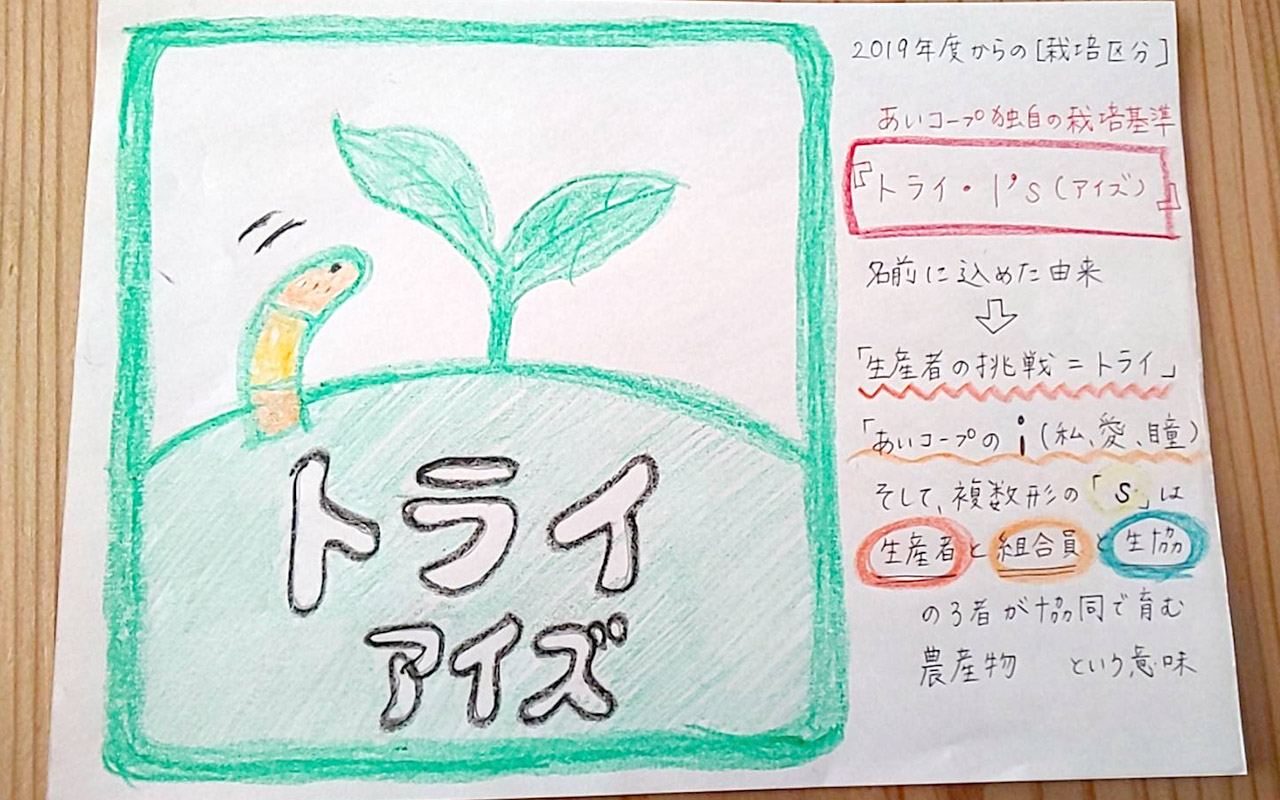 トライ
アイズ
2019年度からの[栽培区分]
あいコープ独自の栽培基準
『トライ・I's(アイズ)』
名前に込めた由来
「生産者の挑戦=トライ」
「あいコープのi(私、愛、瞳)
そして、複数形の「s」は
生産者と組合員と生協
の3者が協同で育む
農産物 という意味